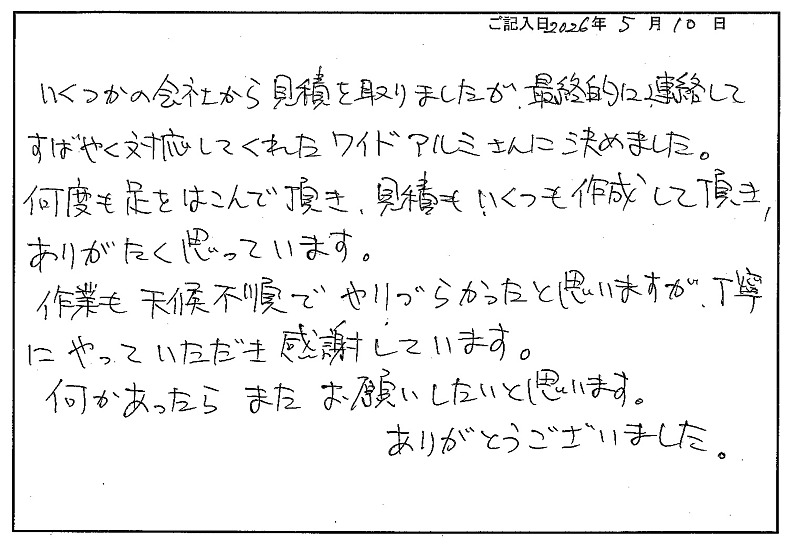 ご記入日2026年 5 月 10 日
いくつかの会社から見積を取りましたが、最終的に連絡して
すばやく対応してくれたワイドアルミさんに決めました。
何度も足をはこんで頂き、見積もいくつも作成して頂き、
ありがたく思っています。
作業も天候不順でやりづらかったと思いますが、丁寧
にやっていただき感謝しています。
何かあったらまたお願いしたいと思います。
ありがとうございました。